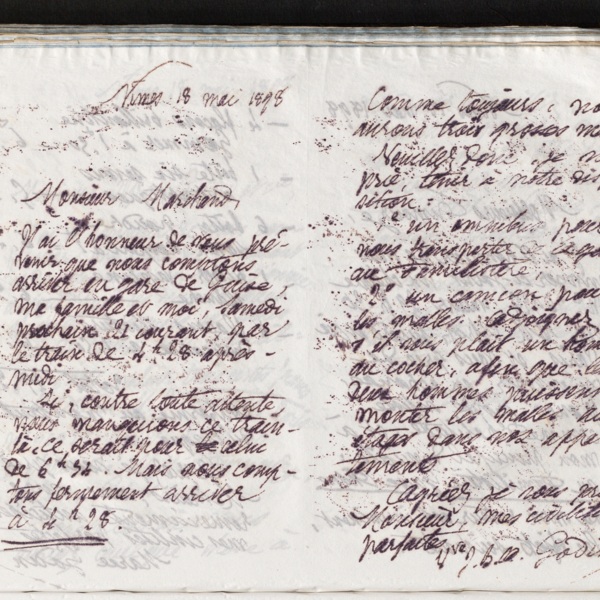 Nîmes 18 mai 1898
Monsieur Marchand
J'ai l'honneur de vous pré-
venir que nous comptons
arriver en gare de Guise,
ma famille et moi, Samedi
prochain 21 courant par
le train de 4h 28 après-
midi.
Si, contre toute attente,
nous manquions ce train-
là, ce serait pour celui
de 6h 32. Mais nous comp-
tons fermement arriver
à 4h 28.
Comme toujours, no
aurons trois grosses ma
Veuillez donc, je v
prie, tenir à notre dis
sition:
1° un omnibus pour
nous transporter de la ga
au Familistère;
2° un camion pou
les malles. Adjoignez
s'il vous plaît un hom
au cocher, afin que le
deux hommes puissent
monter les malles au
étages dans nos appa
tements
Agréez je vous pri
Monsieur, mes civilité
parfaites
Vve J. Bte. Godin